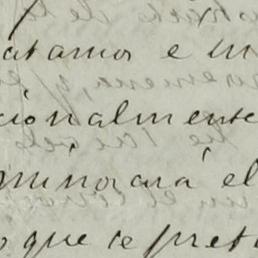 atamos e in
cionalmente
minorara el
o que se pret